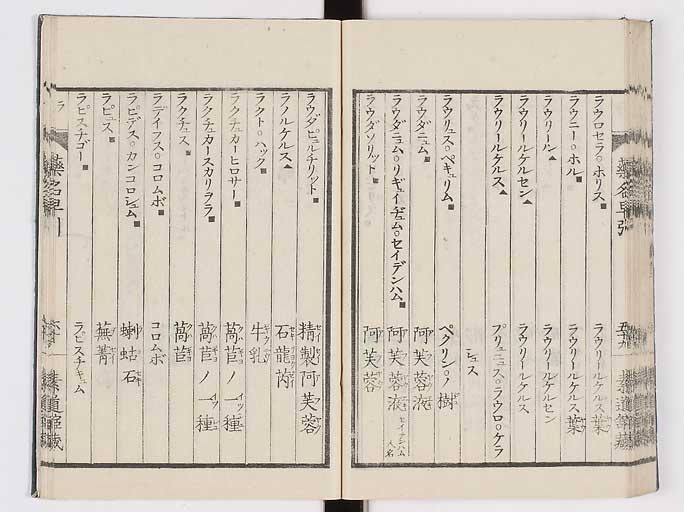 ラウロセラ○ホリス■ ラウリールケルス葉
ラウニー○ホル■ ラウリールケルス葉
ラウリール▲ ラウリールケルス
ラウリールケルセン▲ ラウリールケルセン
ラウリールケルス▲ プリュニュス○ラウロ○ケラ
シュス
ラウリュス○ペギュリム■ ペクリン○ノ樹
ラウダニュム■ 阿芙蓉液
ラウダニュム○リギュイヂュム○セイデンハム■ 阿芙蓉液 セイデンハム人名
ラウダソリット■ 阿芙蓉
ラウダピュルチリット■ 精製阿芙蓉
ラノルケルス▲ 石龍芮
ラクト○ハック■ 牛乳
ラクチュカーヒロサー■ 萵苣ノ一種
ラクチュカースカリララ■ 萵苣ノ一種
ラクチュス■ 萵苣
ラデイフス○コロムボ■ コロムボ
ラピデス○カンコロシュム■ 蝲蛄石
ラピュス■ 蕪菁
ラピスチゴー■ ラピスチキュム
ラ